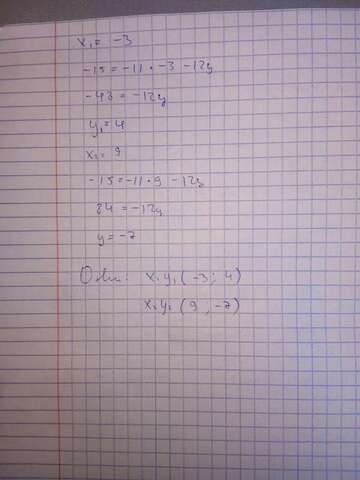 x₁= -3
-15=-11·-3 -12y
-48=-12y
y₁=4
x₂= 9
-15=-11·9 -12y
84=-12y
y=-7
x₁y₁(-3; 4)
x₂y₂(9, -7)